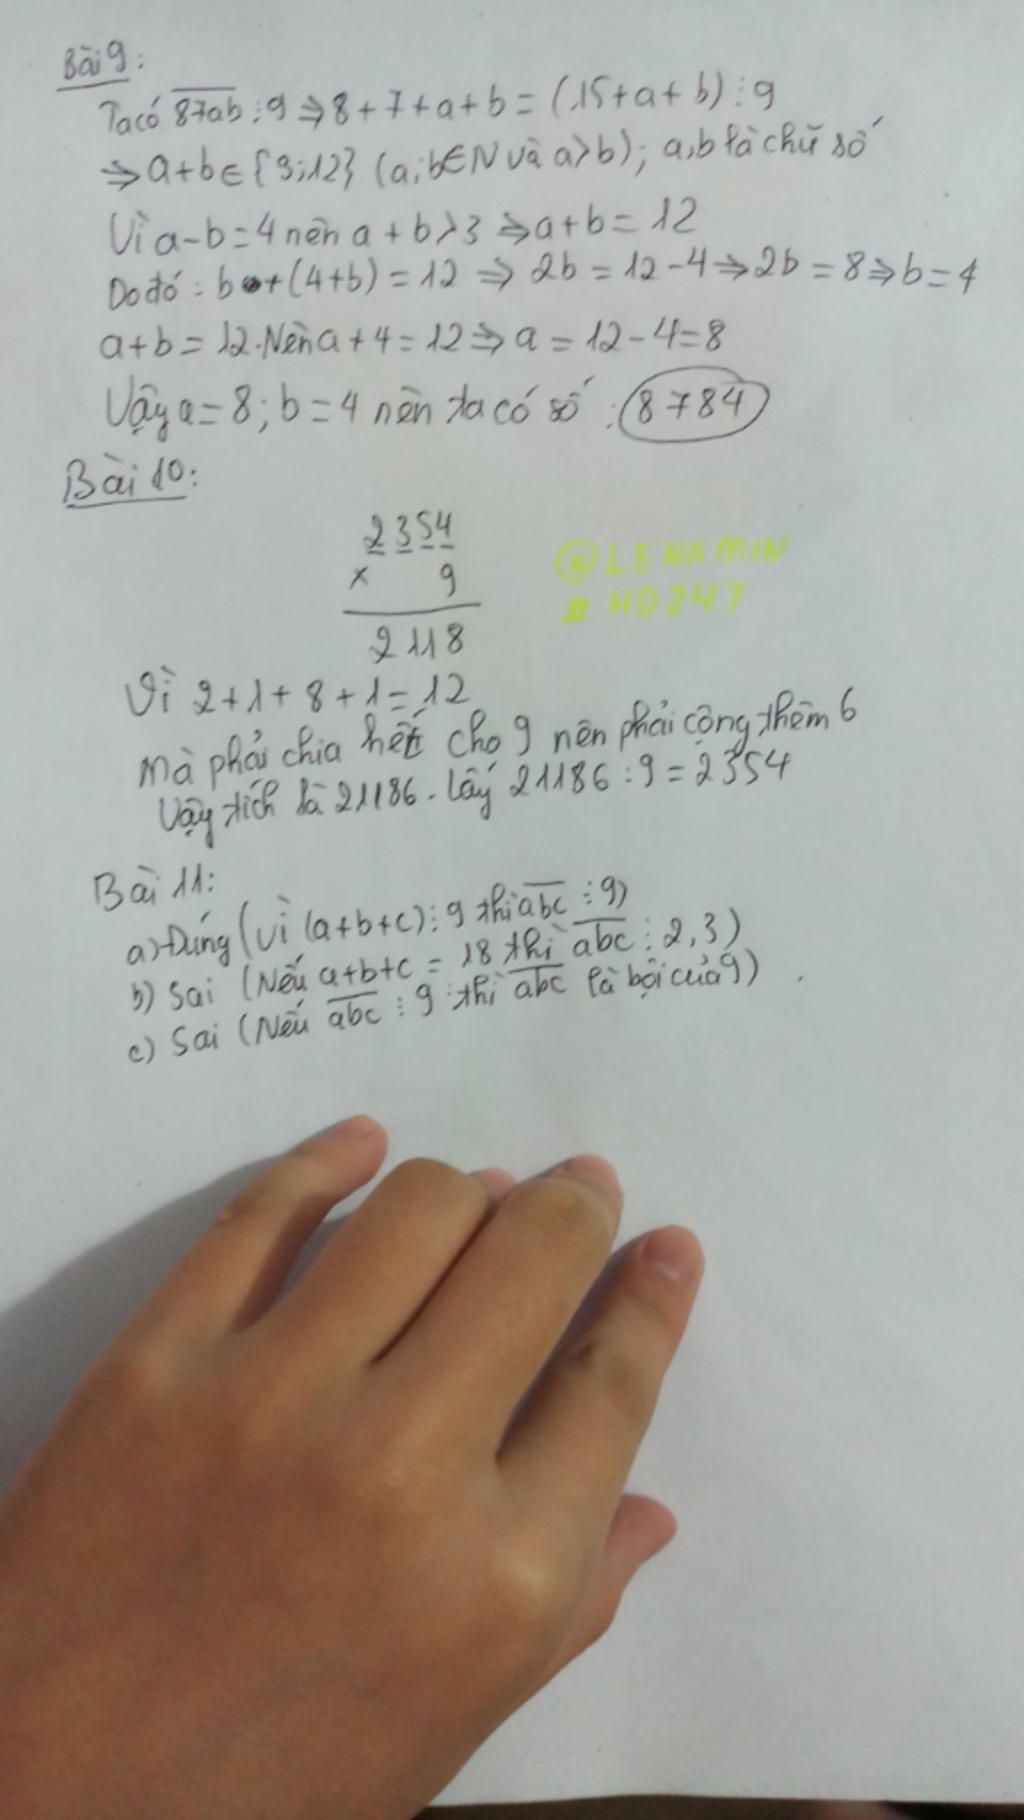 Bài 9:
Ta có 87ab ⋮ 9 ⇒ 8 + 7 + a + b = (15 + a + b) ⋮ 9
⇒ a + b ∈ {3; 12} (a; b ∈ N và a > b); a, b là chữ số
Vì a - b = 4 nên a + b > 3 ⇒ a + b = 12
Do đó : b + (4 + b) = 12 ⇒ 2b = 12 - 4 ⇒ 2b = 8 ⇒ b = 4
a + b = 12. Nên a + 4 = 12 ⇒ a = 12 - 4 = 8
Vậy a = 8; b = 4 nên ta có số : 8784
Bài 10:
2354
x 9
2118
@LENAMIN
# HD247
Vì 2 + 1 + 8 + 1 = 12
Mà phải chia hết cho 9 nên phải cộng thêm 6
Vậy tích là 21186. Lấy 21186 : 9 = 2354
Bài 11:
a) Đúng (Vì (a+b+c) ⋮ 9 thì abc ⋮ 9)
b) Sai (Nếu a+b+c = 18 thì abc ⋮ 2,3)
c) Sai (Nếu abc ⋮ 9 thì abc là bội của 9)